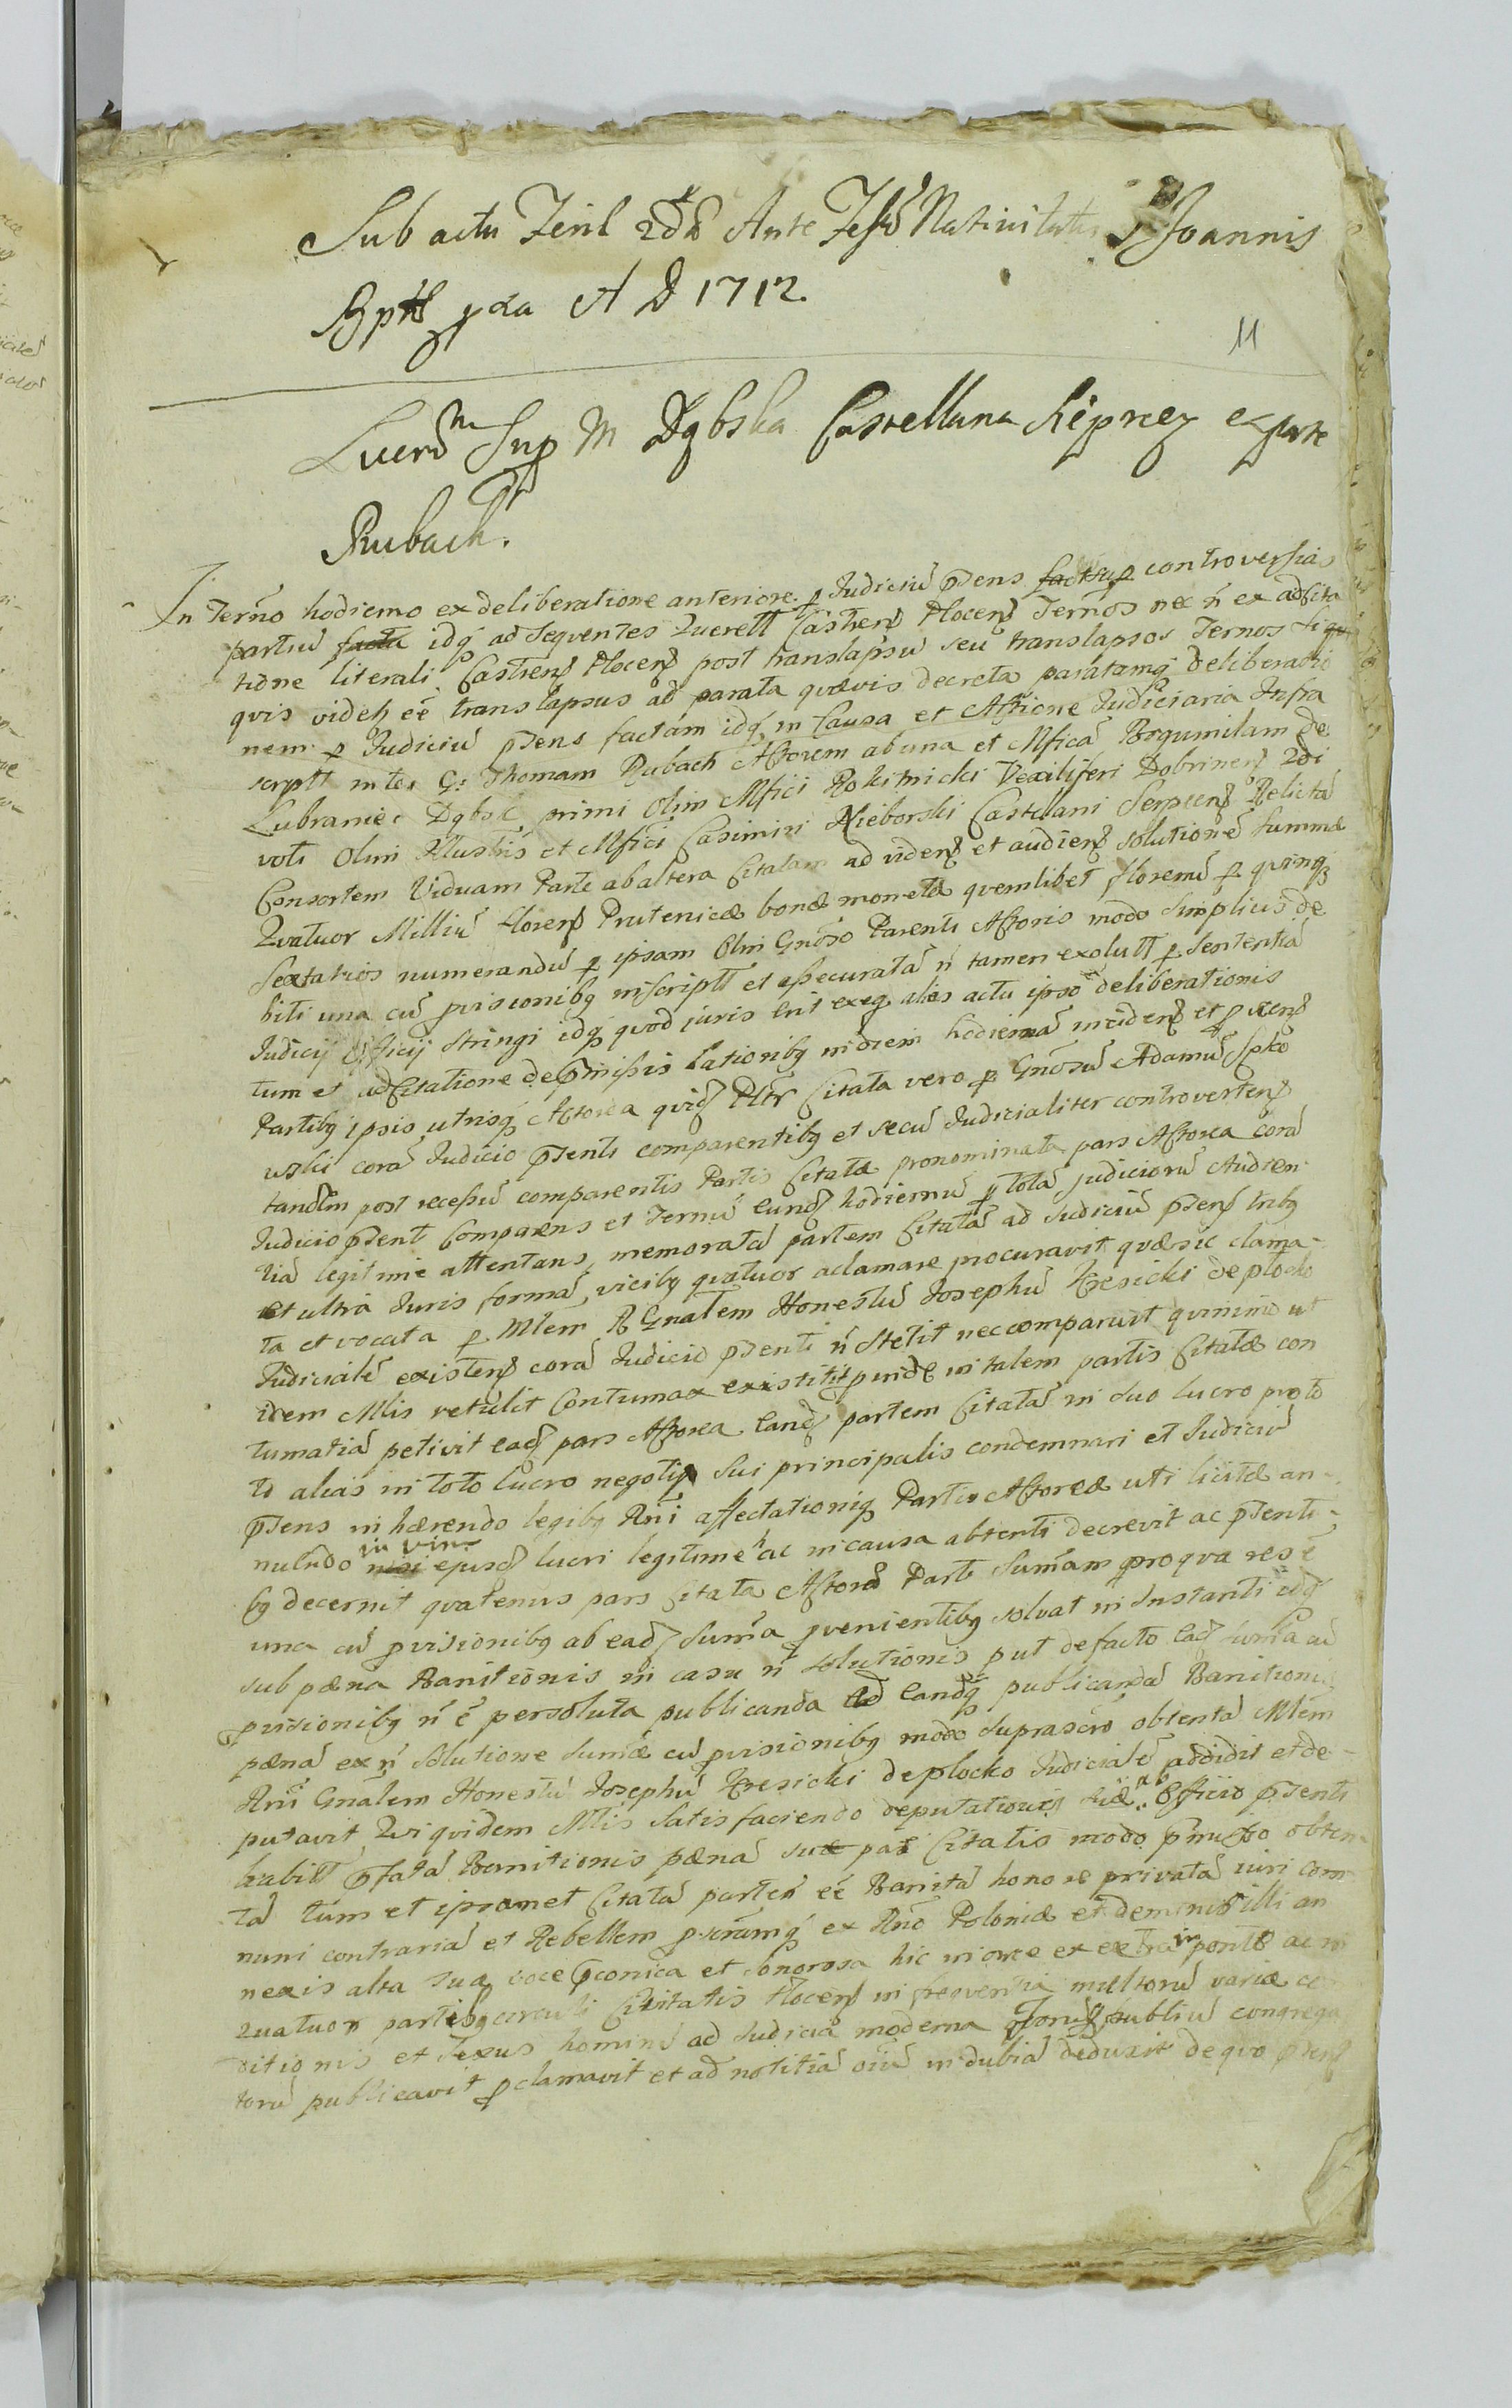 Sub actu Feril 2dd Ante Festũ Nativitatis S Joannis
Bptæ pxa A D 1712.
11
Lucrũ Sup M Dąbska Castellana Siprcẜ ex parte
Rubach.
In Terño hodierno ex deliberatione anteriore p Judiciũ pñsens controversias
partiũ idq ad Sequentes Querell Castreñ Plocenẜ Terños nec ñ ex adcita
tione literali Castrenẜ Plocenẜ post translapsũ seu translapsos Ternos siqui
quis videtz eẽ translapsus ad parata quævis decreta paratamq deliberatio
nem p Judiciũ pñsens factam idq in Causa et Actione Judiciaria Infra
scriptt inter Gs Thomam Rubach Actorem ab una et Mficã Bogumilam de
Lubraniec Dąbsk primi Olim Mfici Rokitnicki Vexiliferi Dobrinenẜ 2di
voti Olim Illustris et Mfici Casimiri Nieborski Castelani Serpcenẜ Relictã
Consortem Viduam Parte ab altera Citatam ad videnẜ et audienẜ solutionẽ summæ
Quatuor Milliũ florenẜ Prutenicæ bonæ monetæ quemlibet florenũ p quinq
Sextarios numerandũ p ipsam Olim Gnõso Parenti Actoris modo simplicis de
biti una cũ pvisionibq inscriptt et assecuratã ñ tamen exolutt p Sententiã
Judicij Officij Stringi idq quod juris erit exeq alias actu ipso deliberationis
tum et adcitatione de pmissis rationibq in diem hodiernã incidenẜ et pvenẜ
Partibq ipsis utrisq Actorea quidẜ Pltr Citata vero p Gnõsũ Adamũ Spko
wski corã Judicio pñsenti comparentibq et secũ Judicialiter controvertenẜ
tandem post recessũ comparentis Partis Citatæ pronominata pars Actorea corã
Judicio pñsent Comparens et Ternũ eundẜ hodiernũ p totã judiciorũ Audien
tiã legitime attentans, memoratã partem Citatã ad Judiciũ pñsenẜ tribq
et ultra Juris formã, vicibq quatuor aclamare procuravit quæ sic clama-
ta et vocata p Mlem R Gnalem Honestũ Josephũ Kresicki de plocko
Judicialẽ existenẜ corã Judicio pñsenti ñ stetit nec comparuit quinimo ut
idem Mlis retulit Contumax existitit pinde in talem partis Citatæ con
tumatiã petivit eadẜ pars Actorea eandẜ partem Citatã in suo lucro pro to
to alias in toto lucro negotij sui principalis condemnari et Judiciũ
pñsens in hærendo legibq Rñi affectationiq Partis Actoreæ uti licitæ an-
nuendo in vim ejusdẜ lucri legitime hac in causa obtenti decrevit ac pñsenti-
bq decernit quatenus pars Citata Actoreæ Parti Sum̃am pro qua res ẽ
una cũ pvisionibq ab eadẜ Sum̃a pvenientibq solvat in Instanti idq
sub pæna Banitionis in casu ñ Solutionis put de facto eadẜ sum̃a cũ
pvisionibq ñ ẽ persoluta publicanda Ad eandq publicandã Banitionis
pænã ex ñ solutione sum̃æ cũ pvisionibq modo suprascro obtentã Mlem
Rñi Gnalem Honestũ Josephũ Kresicki de plocko Judicialẽ addidit et de-
putavit Qui quidem Mlis satisfaciendo deputationi suæ ab Officio pñsenti
habitt pfatã Banitionis pænã Citatis modo pmisso obten
tã tum et ipsamet Citatã partem eẽ Banitã honore privatã iuri com
muni contrariã et Rebellem pscrãmq ex Rño Poloniæ et Dominis illi an
nexis alta sua voce pconica et sonorosa hic in arce ex extra in ponte ac in
quatuor partibq circuli Civitatis Plocenẜ in frequentia multorũ variæ con
ditionis et Sexus hominũ ad Judicia moderna publiũ congrega
torũ publicavit pclamavit et ad notitiã oiũ indubiã deduxit de quo pñsenẜ